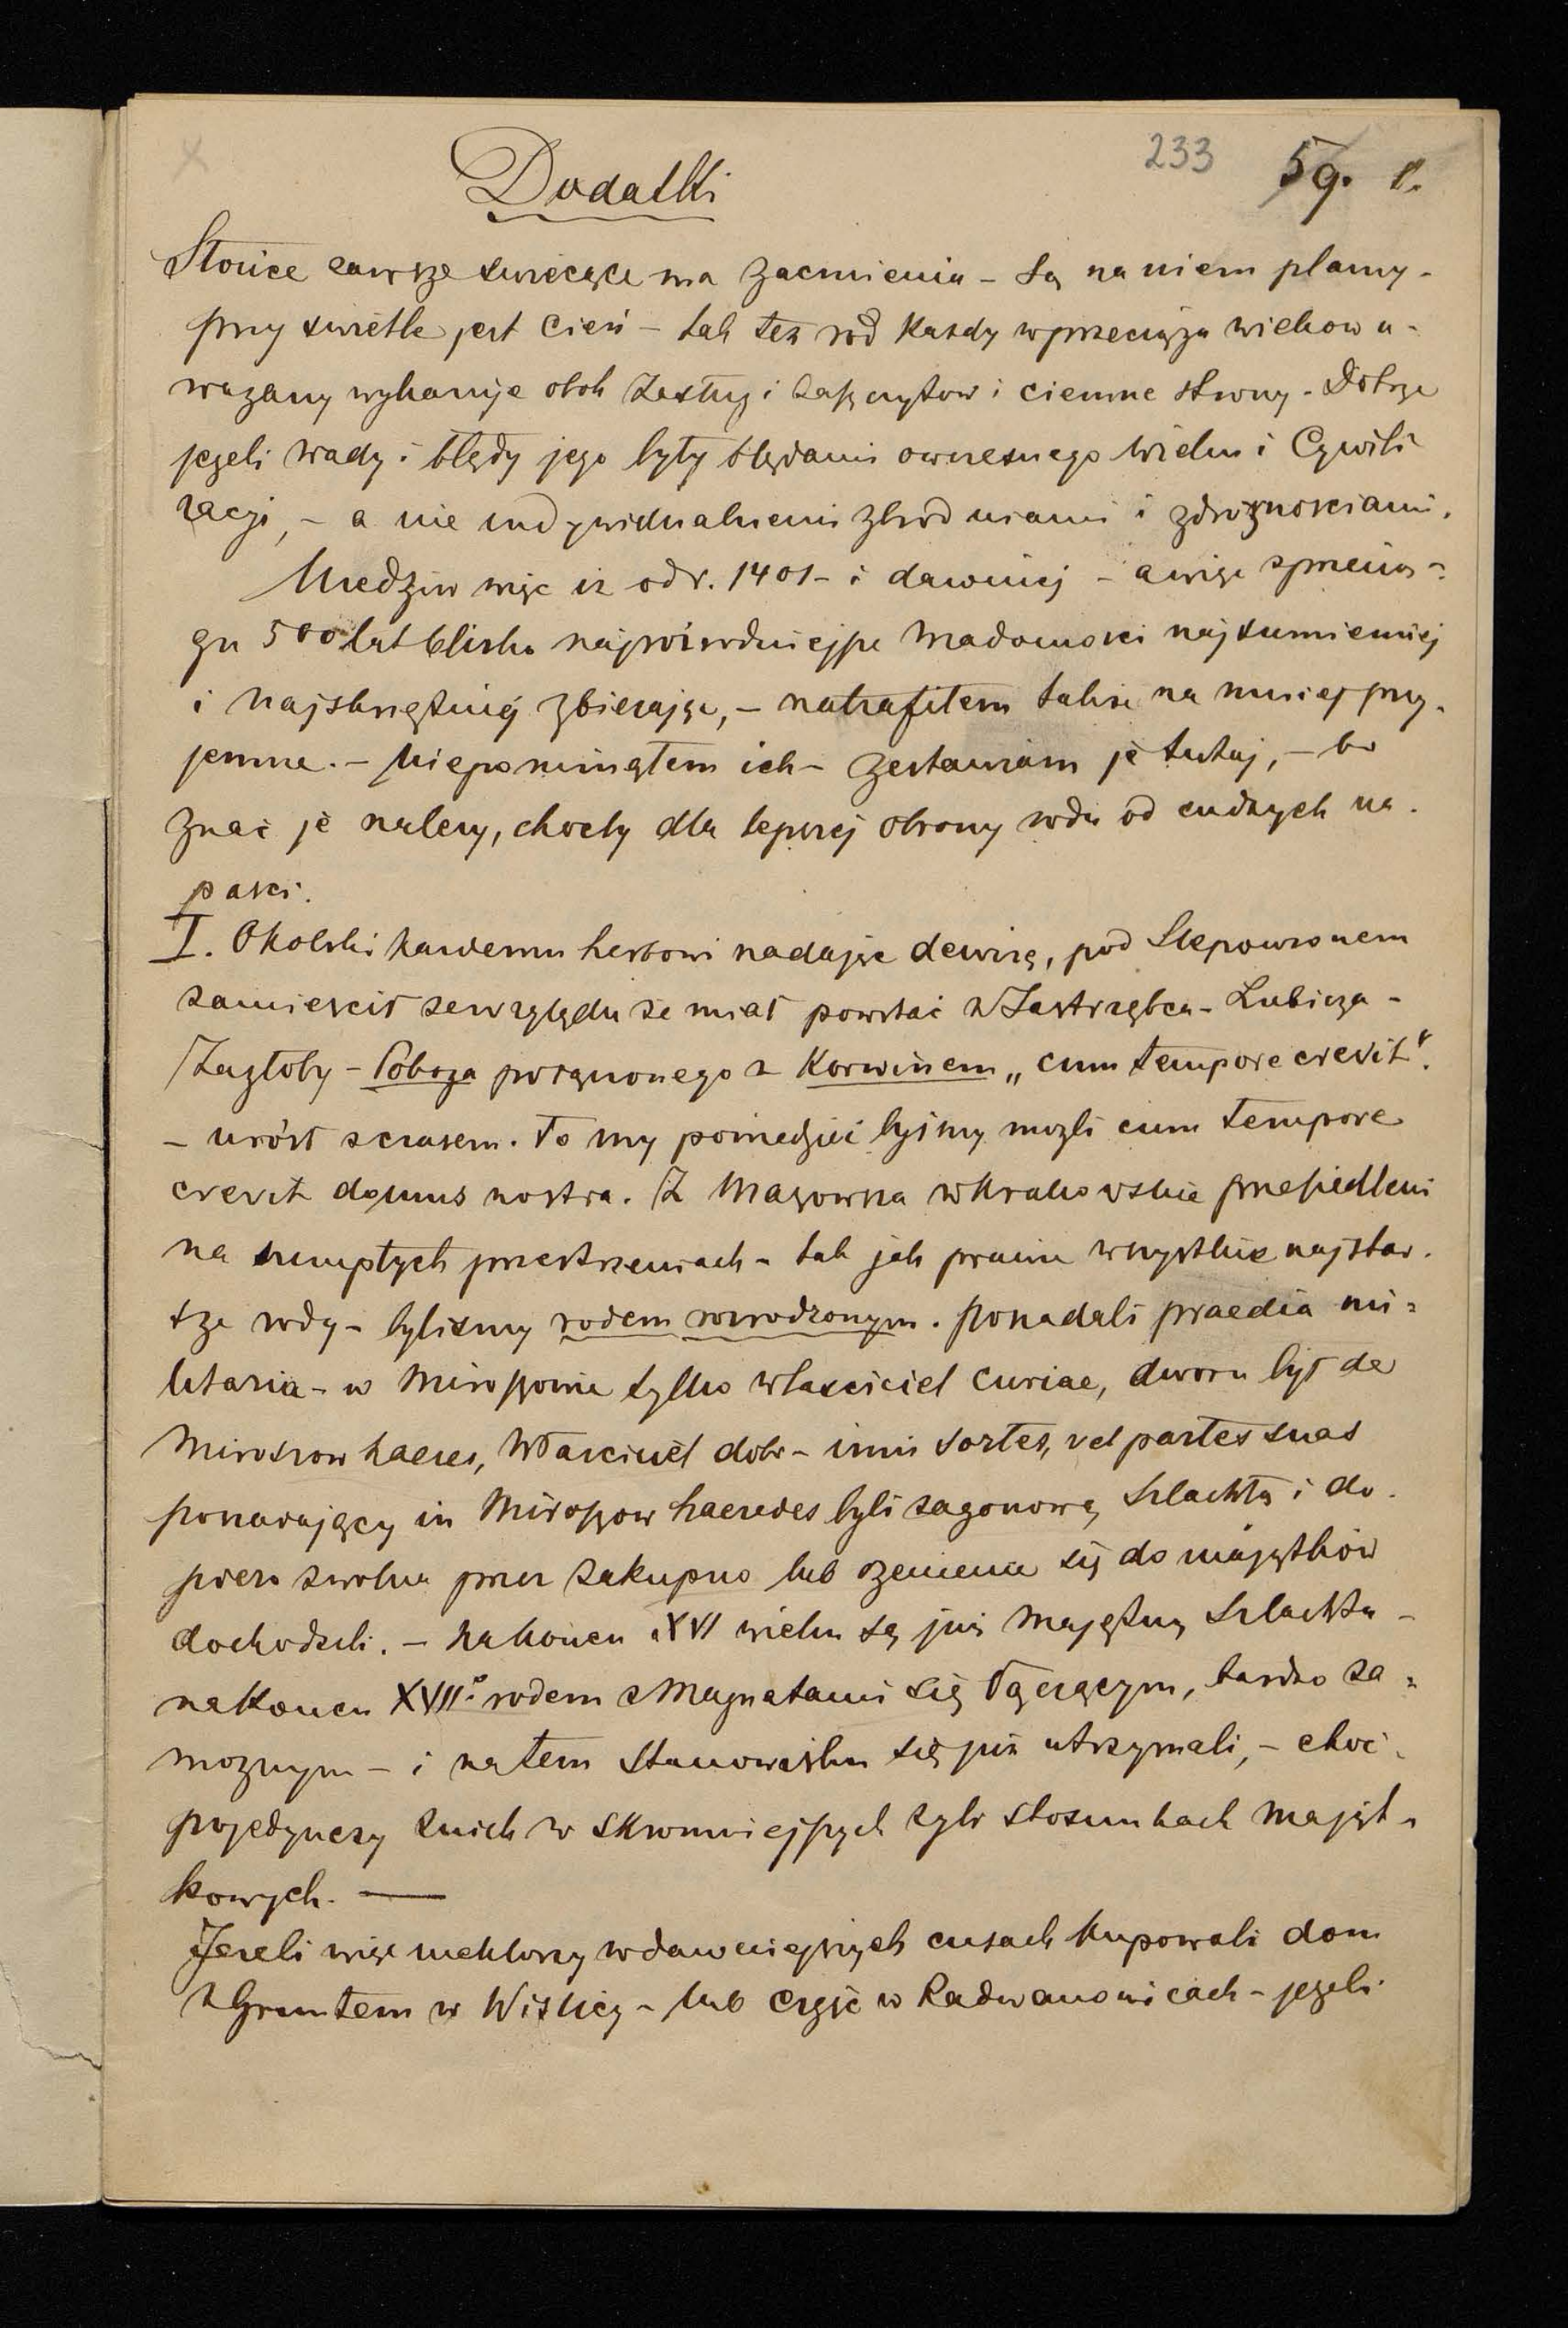 233 59. 1.
Dodatki
Słońce zawsze świecące ma zacmienia – są na niem plamy –
przy świetle jest cień – tak też ród każdy w przeciągu wieków u-
ważany wykazuje obok zasług i zaszczytów i ciemne strony. Dobrze
jeżeli wady i błędy jego były błędami owczesnego wieku i Cywili
zacji, – a nie indywidualnemi zbrodniami i zdrożnosciami.
więc iż od r. 1401 – i dawniej – a więc w przecią-
gu 500 lat blisko wiadomosci najsumienniej
i najskrzętniej zbierając, – natrafiłem także na mniej przy-
jemne. – Niepominąłem ich – zestawiam je tutaj, – bo
znać je należy, choćby dla lepszej obrony rodu od cudzych na-
pasci.
I. Okolski każdemu herbowi nadając dewizę, pod Slepowronem
zamiescił ze względu że miał powstać z Jastrzębca – Lubicza –
/Zagłoby – Poboga połączonego z Korwinem „cum tempore crevit".
– urósł z czasem. To my powiedzieć byśmy mogli cum tempore
crevit domus nostra. Z Mazowsza w Krakowskie przesiedleni
na szczupłych przestrzeniach – tak jak prawie wszystkie najstar-
sze rody – bylismy rodem rozrodzonym. Posiadali praedia mi-
litaria – w Miroszowie tylko własciciel curiae, dworu był de
Miroszow haeres, Własciciel dóbr – inni sortes, vel partes suas
posiadający in Miroszow haeredes byli zagonową szlachtą i do-
piero zwolna przez zakupno lub ożenienie się do majątków
dochodzili. – Na koncu XVI wieku są już majętną szlachtą –
na koncu XVII.º rodem z Magnatami się łączącym, bardzo za-
moznym – i na tem stanowisku się już utrzymali, – choć
pojedynczy z nich w skromniejszych żyli stosunkach mająt-
kowych. —
Jeżeli więc niektórzy w dawniejszych czasach kupowali dom
z Gruntem w Wislicy – lub część w Radwanowicach – jeżeli